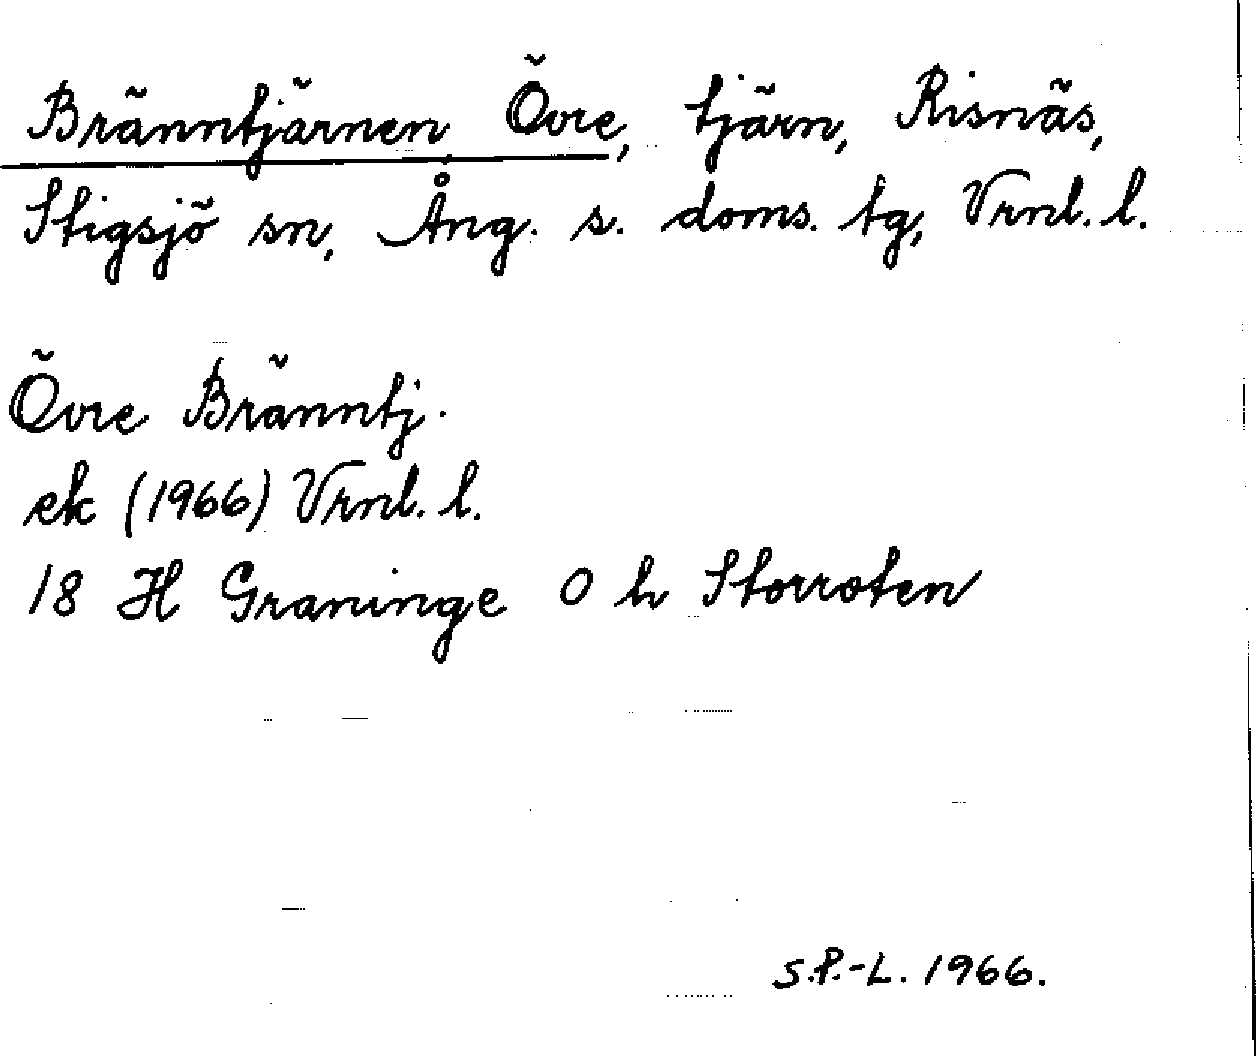 Bränntjärnen, Övre, tjärn, Risnäs,
Stigsjö sn, Ång. s. doms. tg, Vrnl. l.
Övre Bränntj.
ek (1966) Vrnl. l.
18 H Graninge O h Storroten
S.P.-L. 1966.